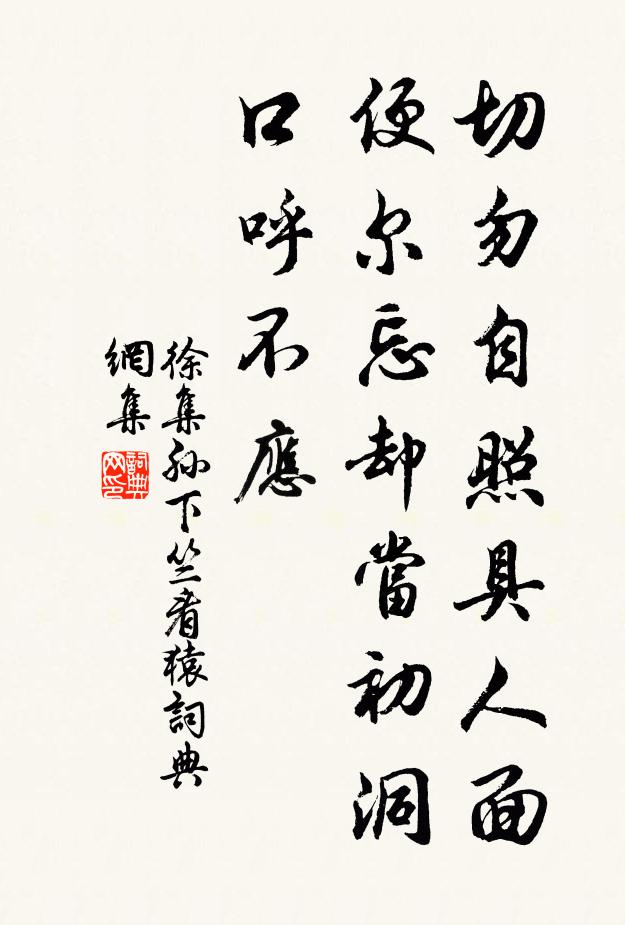 切勿自照具人面
便尔忘却當初洞
口呼不應
徐集孙下竺看猿詞典
網集
詞典网印